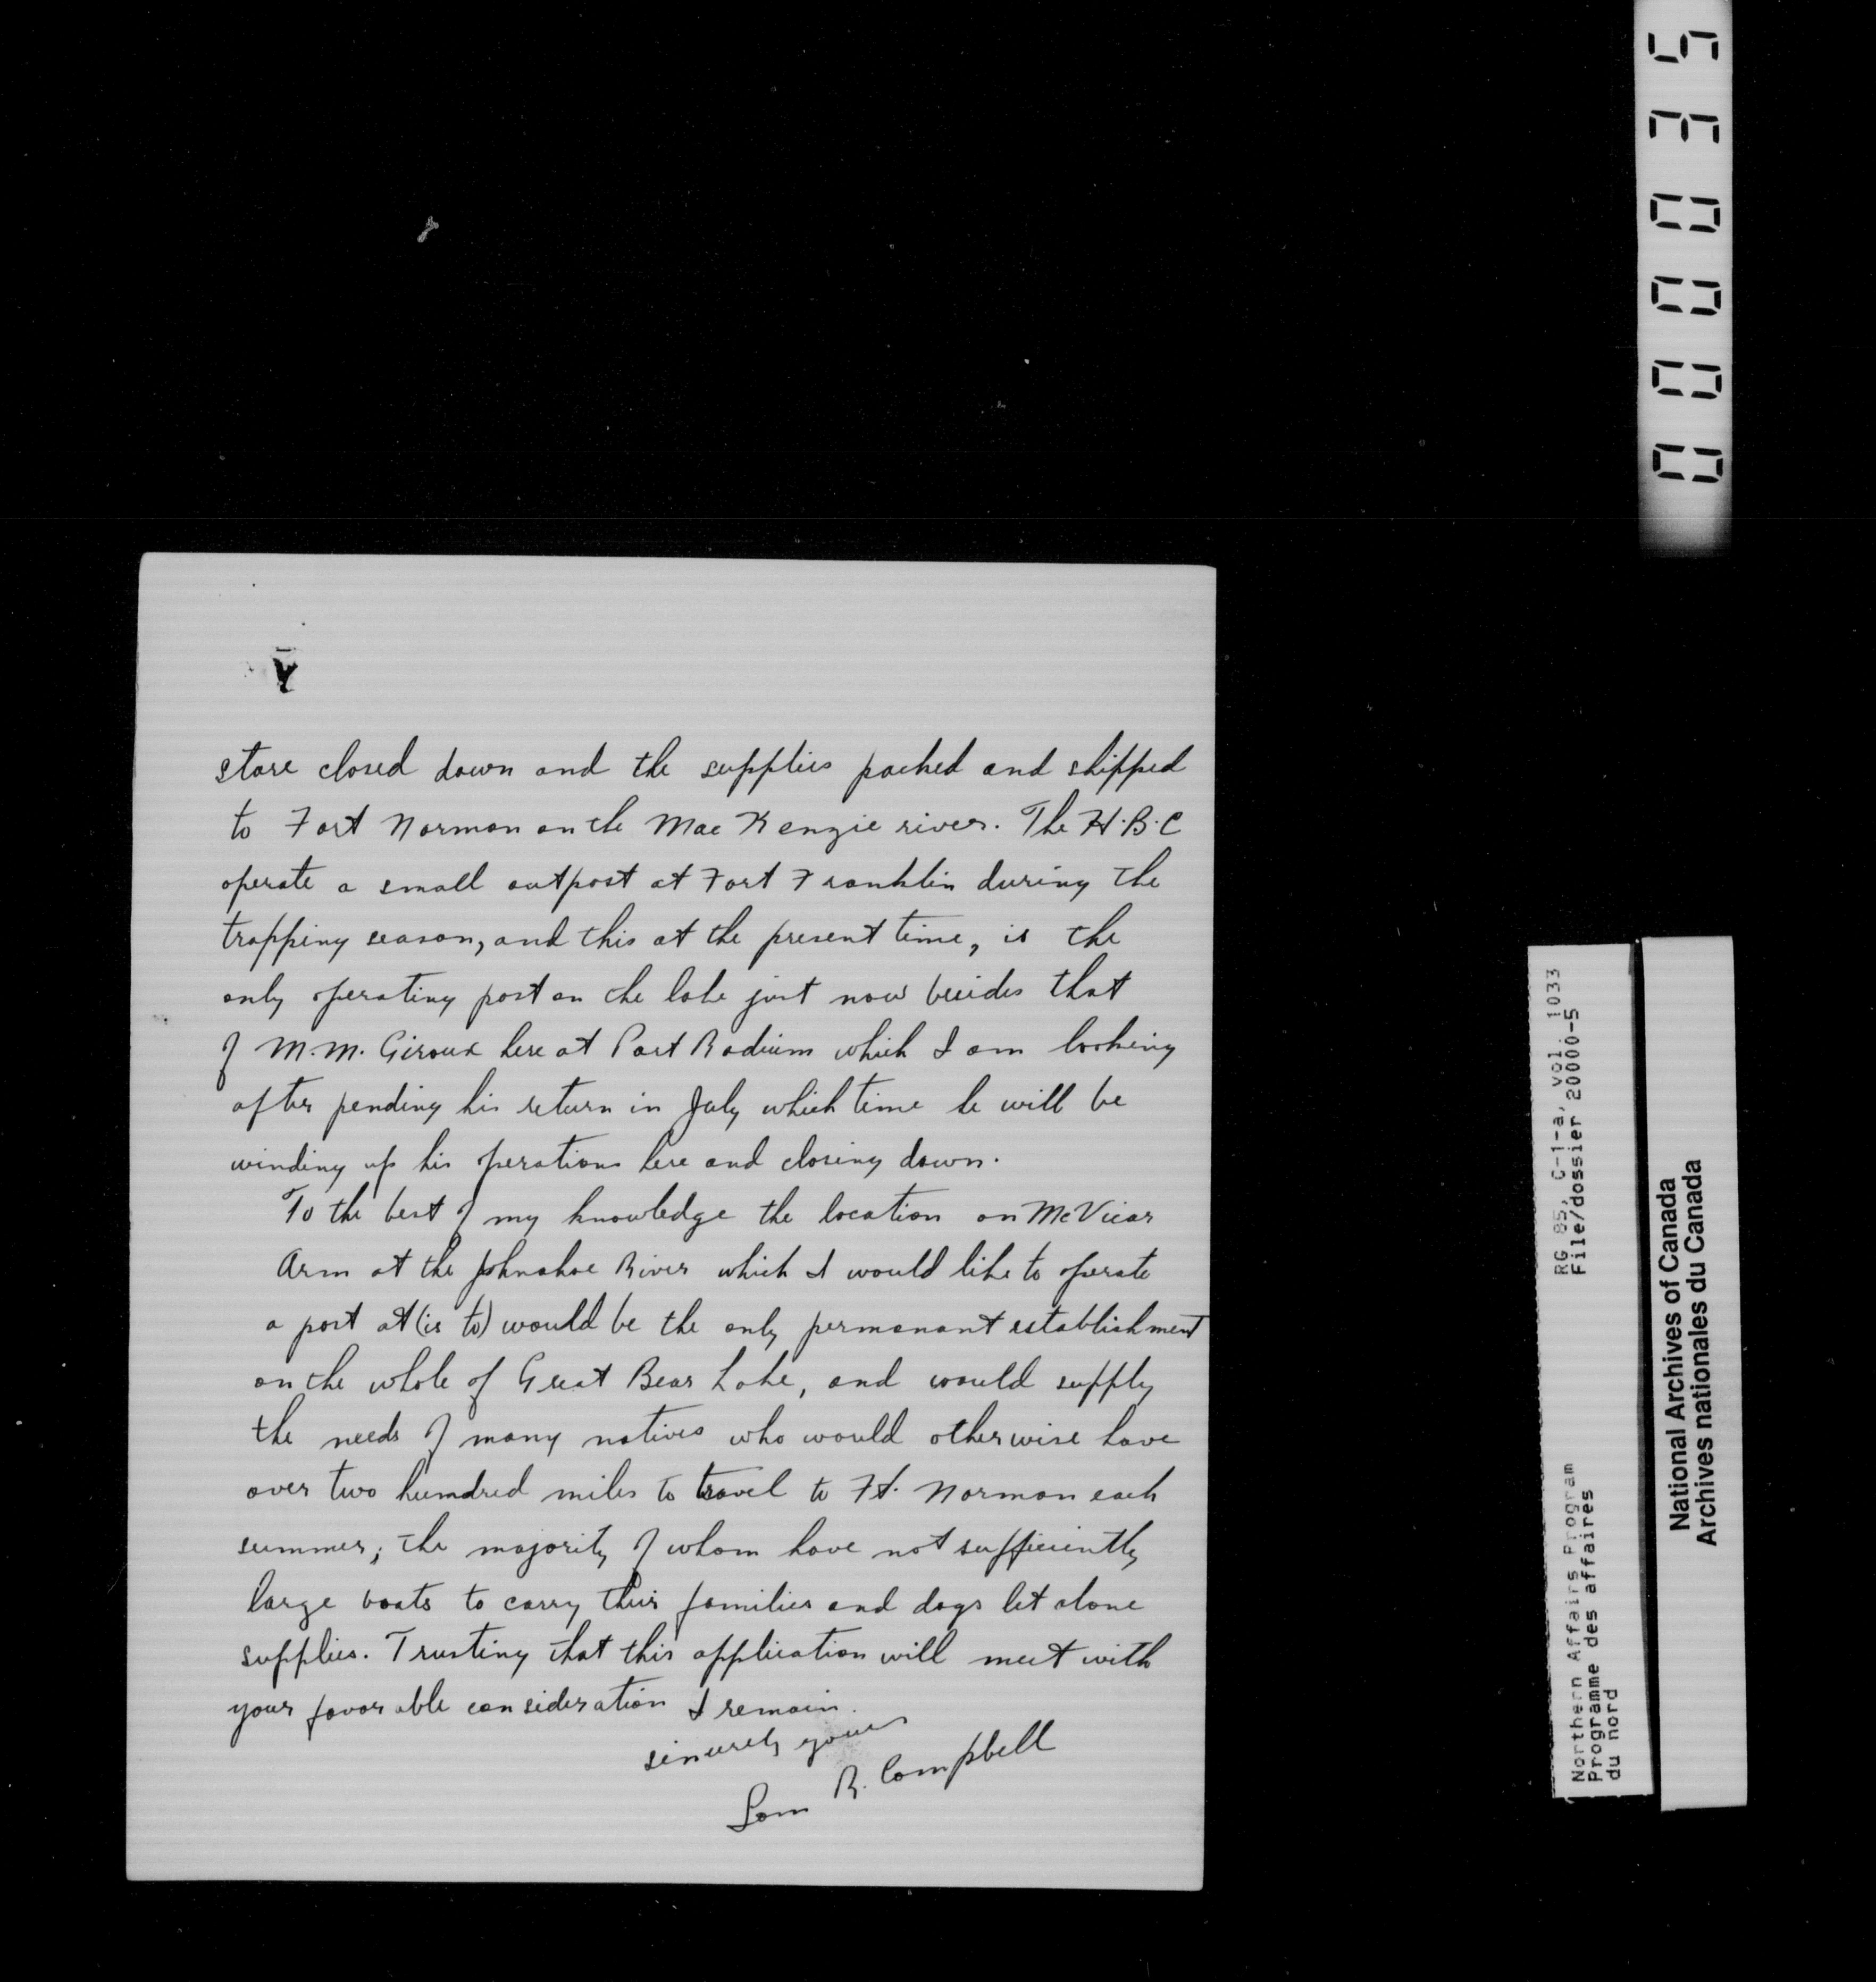 store closed down and the supplies packed and shipped
to Fort Norman on the MacKenzie river. The H.B.C
operate a small outpost at Fort Franklin during the
trapping season, and this at the present time, is the
only operating post on the lake just now besides that
of M.M. Giroux here at Port Radium which I am looking
after pending his return in July which time he will be
winding up his operations here and closing down.
To the best of my knowledge the location on McVicar
Arm at the Johnahoe River which I would like to operate
a post at (is to) would be the only permanant establishment
on the whole of Great Bear Lake, and would supply
the needs of many natives who would otherwise have
over two hundred miles to travel to Ft. Norman each
summer; the majority of whom have not sufficiently
large boats to carry their families and dogs let alone
supplies. Trusting that this application will meet with
your favorable consideration I remain.
sincerely yours
Sam R. Campbell
000035
RG 85, C-1-a, vol. 1033
File/dossier 20000-5
Northern Affairs Program
Programme des affaires
du nord
National Archives of Canada
Archives nationales du Canada